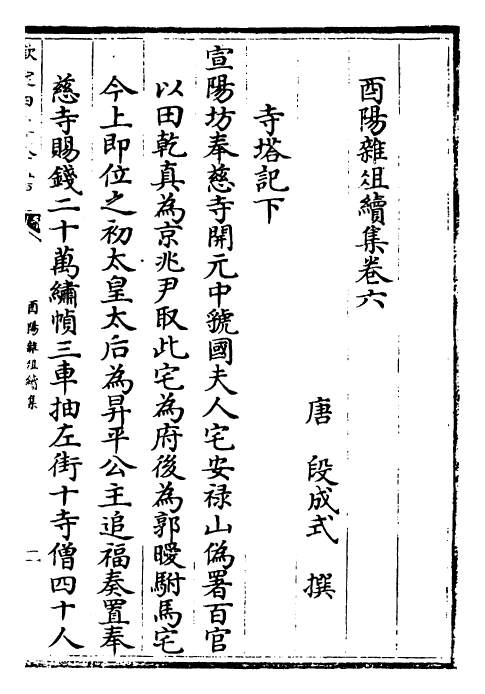 酉陽雜俎續集卷六
唐 段成式 撰
寺塔記下
宣陽坊奉慈寺開元中虢國夫人宅安禄山偽署百官
以田乾真為京兆尹取此宅為府後為郭曖駙馬宅
今上即位之初太皇太后為昇平公主追福奏置奉
慈寺賜錢二十萬繡幀三車抽左街十寺僧四十人
欽定四
酉陽雜俎續集
一